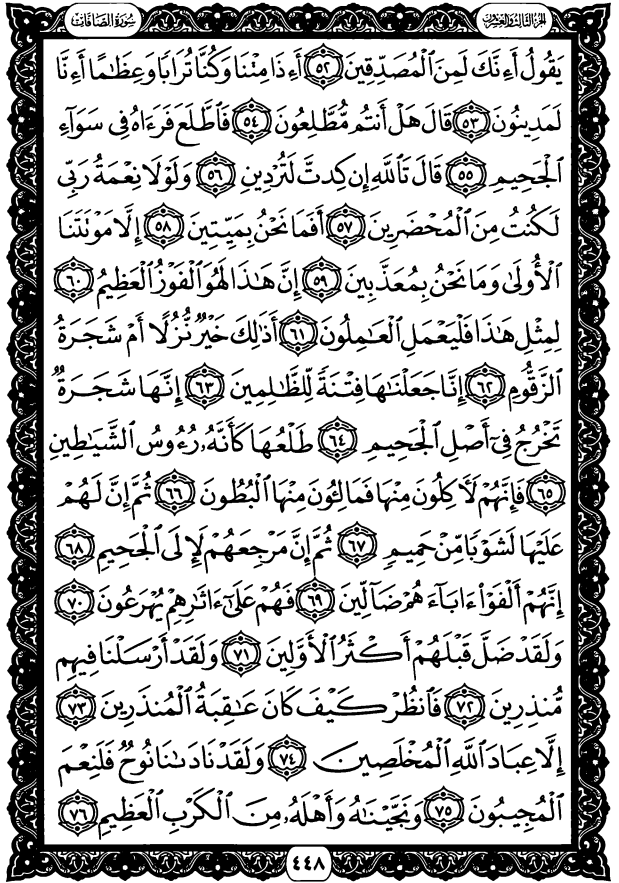 سُورَةُ الصَّافَّاتِ
الجُزْءُ الثَّالِثُ وَالعِشْرُونَ
يَقُولُ أَءِنَّكَ لَمِنَ ٱلْمُصَدِّقِينَ ٥٢ أَءِذَا مِتْنَا وَكُنَّا تُرَابًا وَعِظَٰمًا أَءِنَّا
لَمَدِينُونَ ٥٣ قَالَ هَلْ أَنتُم مُّطَّلِعُونَ ٥٤ فَٱطَّلَعَ فَرَءَاهُ فِى سَوَآءِ
ٱلْجَحِيمِ ٥٥ قَالَ تَٱللَّهِ إِن كِدتَّ لَتُرْدِينِ ٥٦ وَلَوْلَا نِعْمَةُ رَبِّى
لَكُنتُ مِنَ ٱلْمُحْضَرِينَ ٥٧ أَفَمَا نَحْنُ بِمَيِّتِينَ ٥٨ إِلَّا مَوْتَتَنَا
ٱلْأُولَىٰ وَمَا نَحْنُ بِمُعَذَّبِينَ ٥٩ إِنَّ هَٰذَا لَهُوَ ٱلْفَوْزُ ٱلْعَظِيمُ ٦٠
لِمِثْلِ هَٰذَا فَلْيَعْمَلِ ٱلْعَٰمِلُونَ ٦١ أَذَٰلِكَ خَيْرٌ نُّزُلًا أَمْ شَجَرَةُ
ٱلزَّقُّومِ ٦٢ إِنَّا جَعَلْنَٰهَا فِتْنَةً لِّلظَّٰلِمِينَ ٦٣ إِنَّهَا شَجَرَةٌ
تَخْرُجُ فِىٓ أَصْلِ ٱلْجَحِيمِ ٦٤ طَلْعُهَا كَأَنَّهُۥ رُءُوسُ ٱلشَّيَٰطِينِ
٦٥ فَإِنَّهُمْ لَءَاكِلُونَ مِنْهَا فَمَالِـُٔونَ مِنْهَا ٱلْبُطُونَ ٦٦ ثُمَّ إِنَّ لَهُمْ
عَلَيْهَا لَشَوْبًا مِّنْ حَمِيمٍ ٦٧ ثُمَّ إِنَّ مَرْجِعَهُمْ لَإِلَى ٱلْجَحِيمِ ٦٨
إِنَّهُمْ أَلْفَوْا۟ ءَابَآءَهُمْ ضَآلِّينَ ٦٩ فَهُمْ عَلَىٰٓ ءَاثَٰرِهِمْ يُهْرَعُونَ ٧٠
وَلَقَدْ ضَلَّ قَبْلَهُمْ أَكْثَرُ ٱلْأَوَّلِينَ ٧١ وَلَقَدْ أَرْسَلْنَا فِيهِم
مُّنذِرِينَ ٧٢ فَٱنظُرْ كَيْفَ كَانَ عَٰقِبَةُ ٱلْمُنذَرِينَ ٧٣
إِلَّا عِبَادَ ٱللَّهِ ٱلْمُخْلَصِينَ ٧٤ وَلَقَدْ نَادَىٰنَا نُوحٌ فَلَنِعْمَ
ٱلْمُجِيبُونَ ٧٥ وَنَجَّيْنَٰهُ وَأَهْلَهُۥ مِنَ ٱلْكَرْبِ ٱلْعَظِيمِ ٧٦
٤٤٨